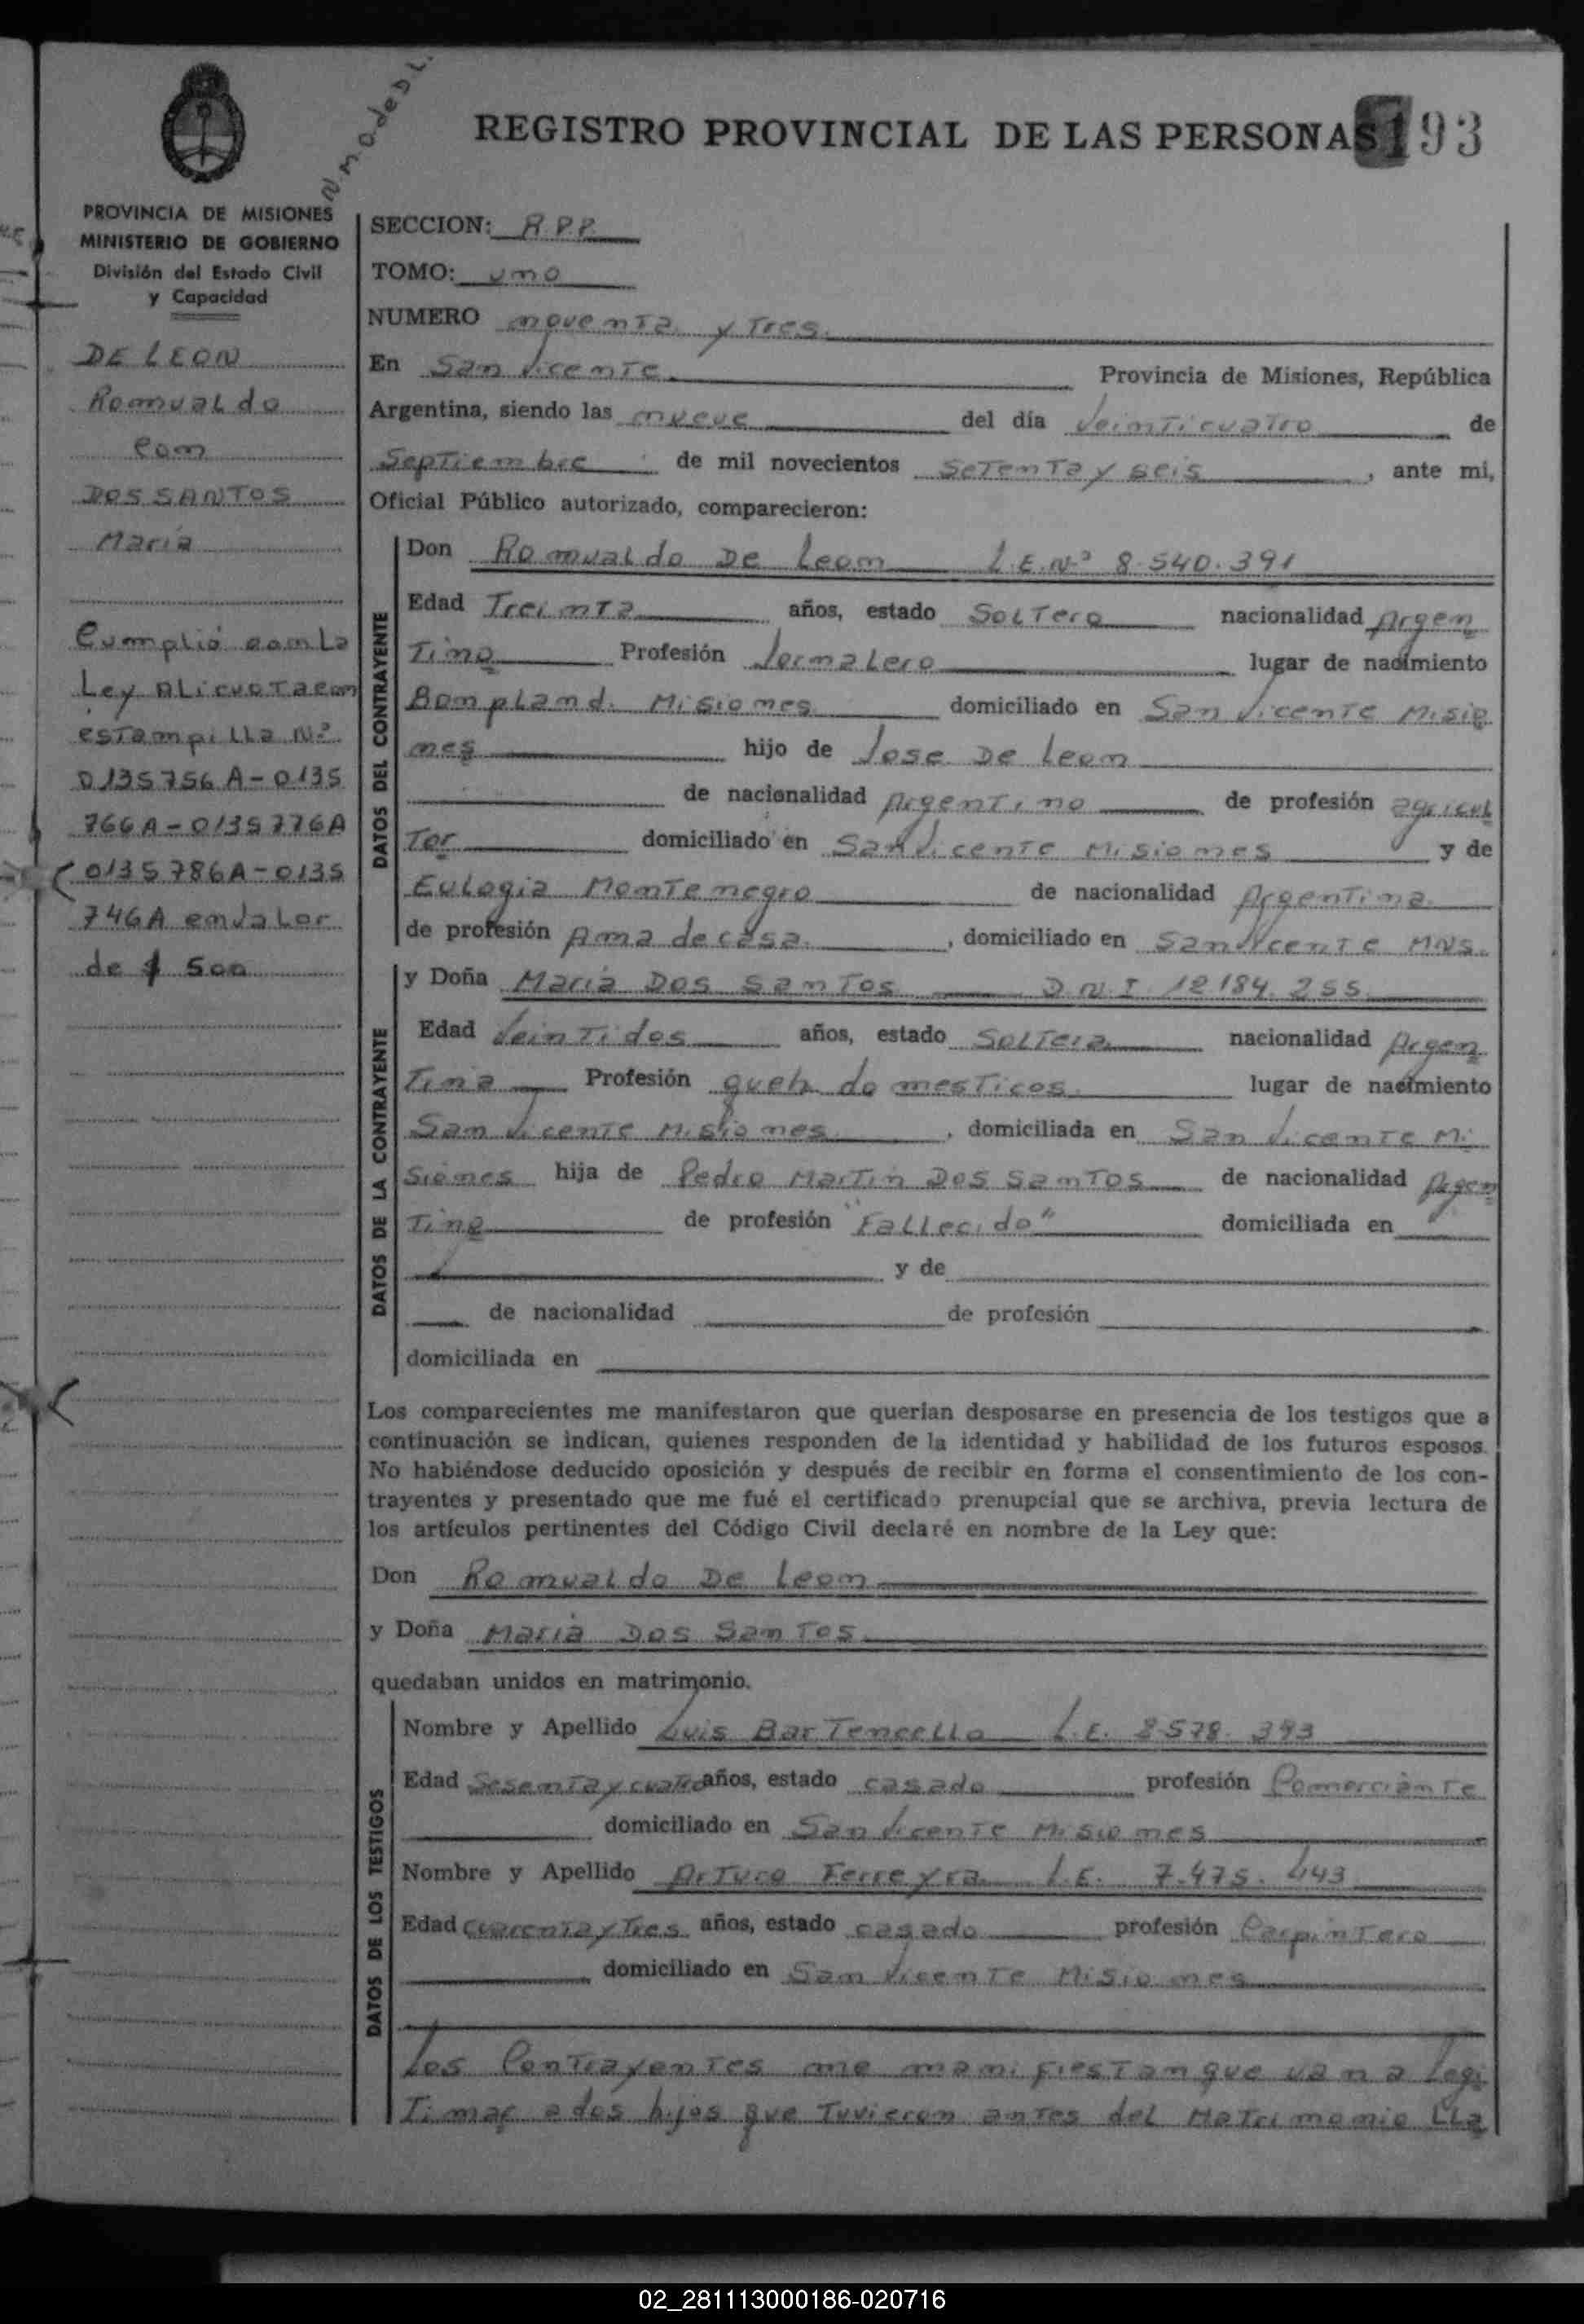 N.M.O. de D L.
REGISTRO PROVINCIAL DE LAS PERSONAS 193
PROVINCIA DE MISIONES
MINISTERIO DE GOBIERNO
División del Estado Civil
y Capacidad
DE LEON
Romualdo
com
DOS SANTOS
Maria
Cumplió com La
Ley ALicuota com
estampilla Nº
0135756 A - 0135
766 A - 0135776 A
0135786 A - 0135
746 A em valor
de $ 500
SECCION: R.P.P.
TOMO: umo
NUMERO moventa y Tres
En San Vicente Provincia de Misiones, República
Argentina, siendo las mueve del día Veinticuatro de
Septiembre de mil novecientos setenta y seis, ante mi,
Oficial Público autorizado, comparecieron:
DATOS DEL CONTRAYENTE
Don Romualdo De Leom L.E.Nº 8.540.391
Edad Treimta años, estado Soltero nacionalidad Argen
Timo Profesión Jormalero lugar de nacimiento
Bompland. Misiomes domiciliado en San Vicente Misio
mes hijo de Jose De Leom
de nacionalidad Argentimo de profesión agricul
Tor domiciliado en San Vicente Misiomes y de
Eulogia Montemegro de nacionalidad Argentima
de profesión Ama de casa, domiciliado en San Vicente MNS.
DATOS DE LA CONTRAYENTE
y Doña Maria Dos Samtos D.N.I 12.184.255
Edad Veintidos años, estado Soltera nacionalidad Argen
Tima Profesión queh domesticos lugar de nacimiento
Sam Vicente Misiomes, domiciliada en San Vicemte Mi
siomes hija de Pedro Martin Dos Samtos de nacionalidad Argen
Tino de profesión "Fallecido" domiciliada en
y de
de nacionalidad de profesión
domiciliada en
Los comparecientes me manifestaron que querían desposarse en presencia de los testigos que a
continuación se indican, quienes responden de la identidad y habilidad de los futuros esposos.
No habiéndose deducido oposición y después de recibir en forma el consentimiento de los con-
trayentes y presentado que me fué el certificado prenupcial que se archiva, previa lectura de
los artículos pertinentes del Código Civil declaré en nombre de la Ley que:
Don Romualdo De Leom
y Doña Maria Dos Samtos
quedaban unidos en matrimonio.
DATOS DE LOS TESTIGOS
Nombre y Apellido Luis Bartencello L.E. 8.578.393
Edad Sesemta y cuatro años, estado casado profesión Comerciante
domiciliado en San Vicente Misiomes
Nombre y Apellido Arturo Ferreyra L.E. 7.475.443
Edad cuarenta y Tres años, estado casado profesión Carpintero
domiciliado en Sam Vicente Misiomes
Los Contrayentes me mamifiestam que van a Legi
Timar a dos hijos que Tuvieron antes del Matrimomio LLa
02_281113000186-020716